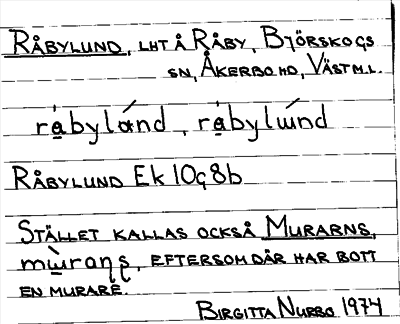 RÅBYLUND, LHT Å RÅBY, BJÖRSKOGS
SN, ÅKERBO HD, VÄSTM.L.
råbylánd, råbylund
RÅBYLUND Ek 10g 8b
STÄLLET KALLAS OCKSÅ MURARNS,
EFTERSOM DÄR HAR BOTT
EN MURARE.
BIRGITTA NURBO 1974